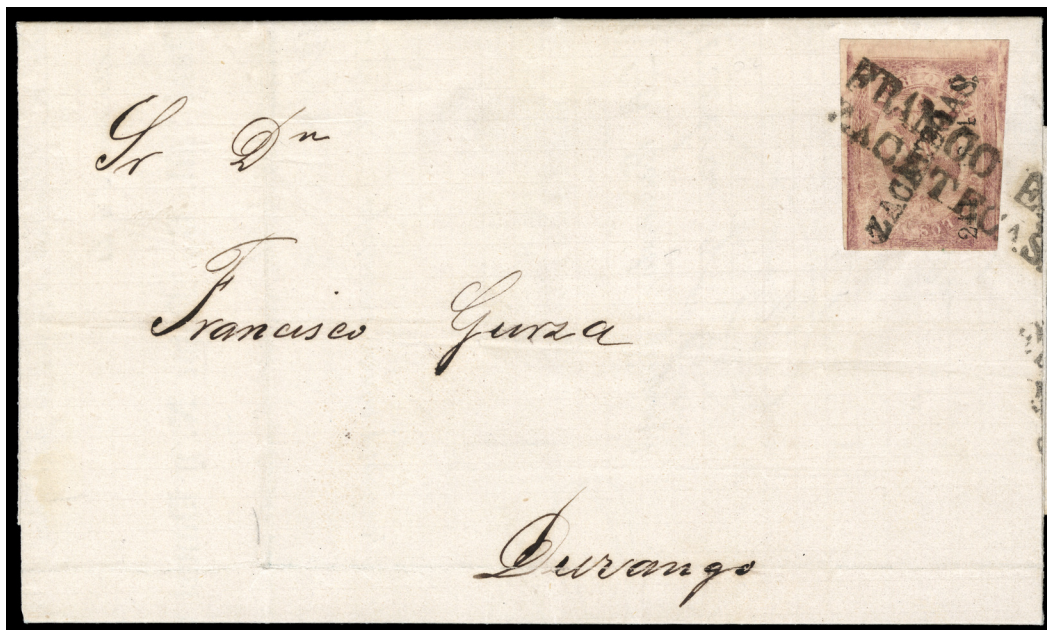 Sr Dn
Francisco Gurza
Durango
FRANCO E
ZACATECAS
ZACATECAS.